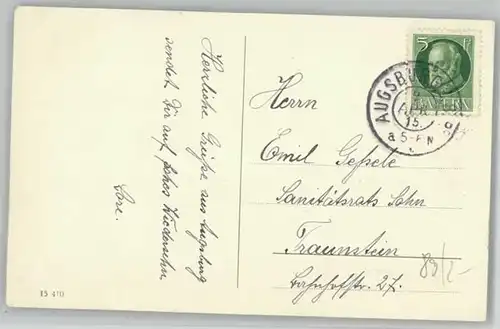 Herzliche Grüße aus Augsburg
sendet Dir auf frohes Wiedersehn
Lore.
5 Pf
BAYERN
AUGSBURG
APR
15.
a 5-6 N
Herrn
Emil Geßele
Sanitätsrats Sohn
Traunstein
Bahnhofstr. 27.
15 410